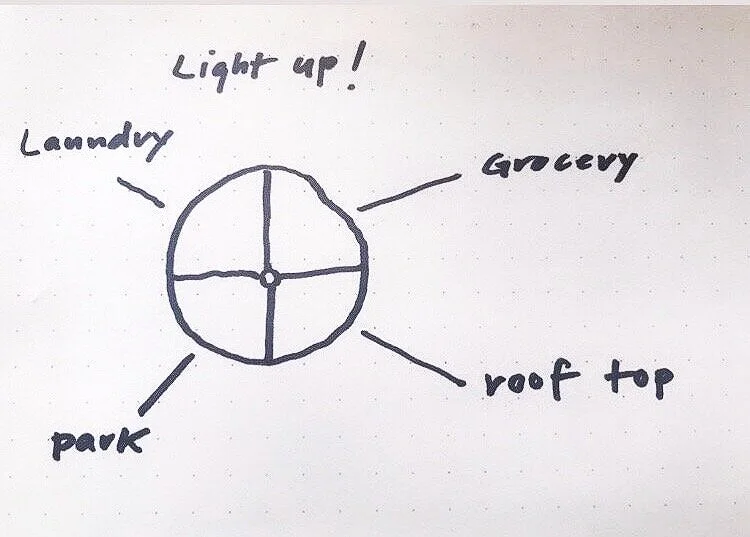 Light up!
Laundry
Grocery
roof top
park